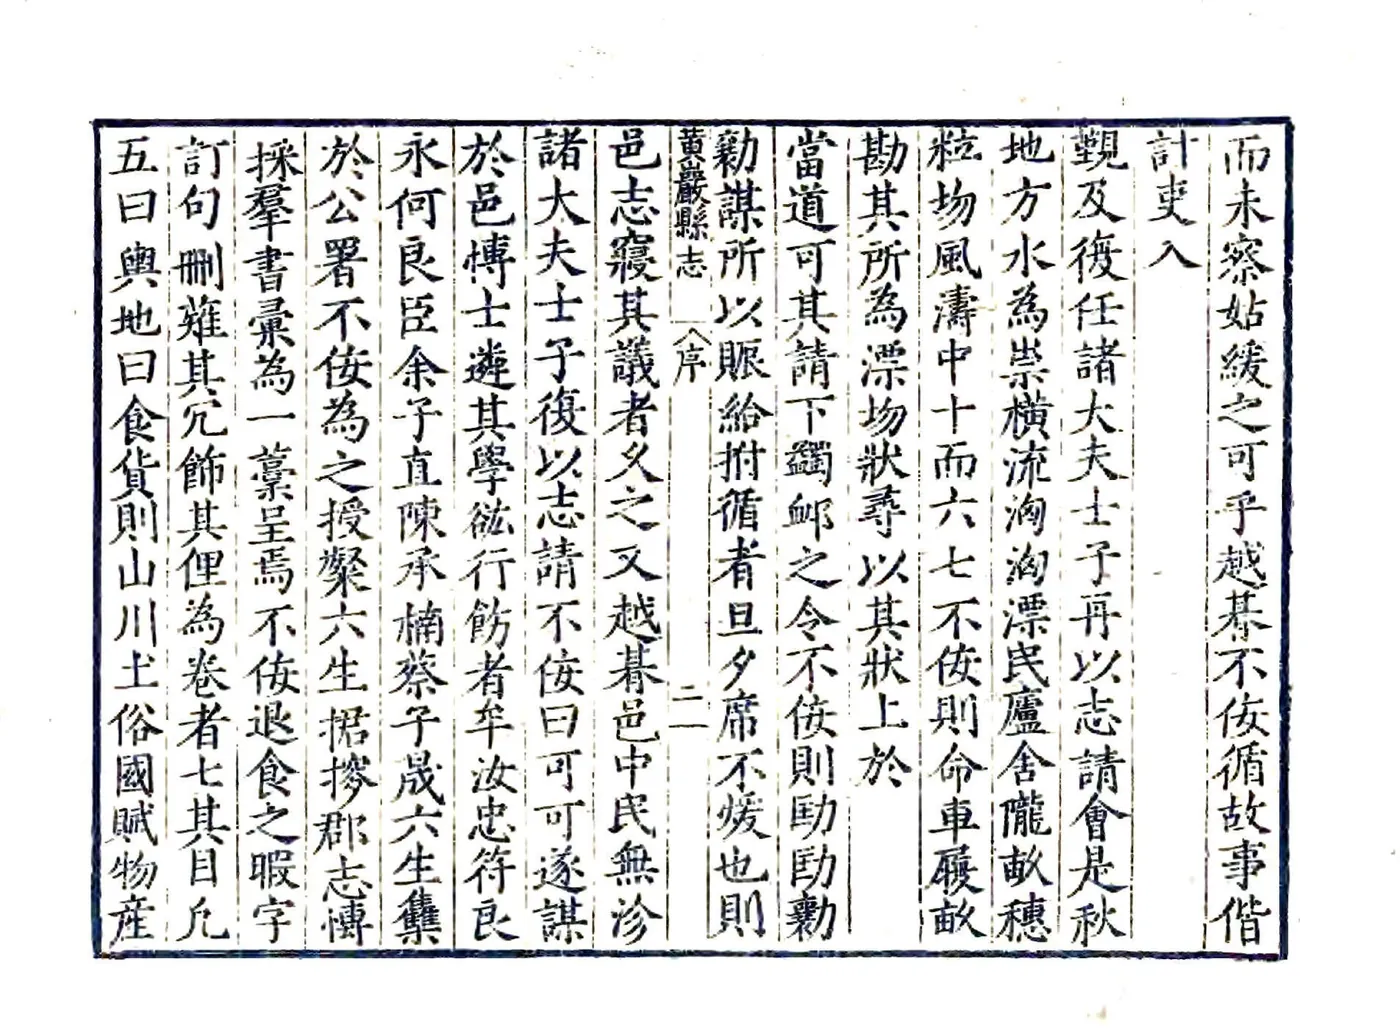 而未察姑緩之可乎越朞不侫循故事偕
計吏入
覲及復任諸大夫士子再以志請會是秋
地方水為祟橫流洶洶漂民廬舍隴畝穗
粒塲風濤中十而六七不侫則命車履畝
勘其所為漂塲狀尋以其狀上於
當道可其請下蠲邮之令不侫則劻劻勷
勷謀所以賑給拊循者旦夕席不煖也則
黃巖縣志 序 二
邑志寢其議者久之又越朞邑中民無沴
諸大夫士子復以志請不侫曰可可遂謀
於邑博士遴其學竑行飭者牟汝忠符良
永何良臣余子直陳承楠蔡子晟六生集
於公署不侫為之授粲六生捃摭郡志博
採羣書彙為一藁呈焉不侫退食之暇字
訂句刪薙其冗飾其俚為卷者七其目凡
五曰輿地曰食貨則山川土俗國賦物產